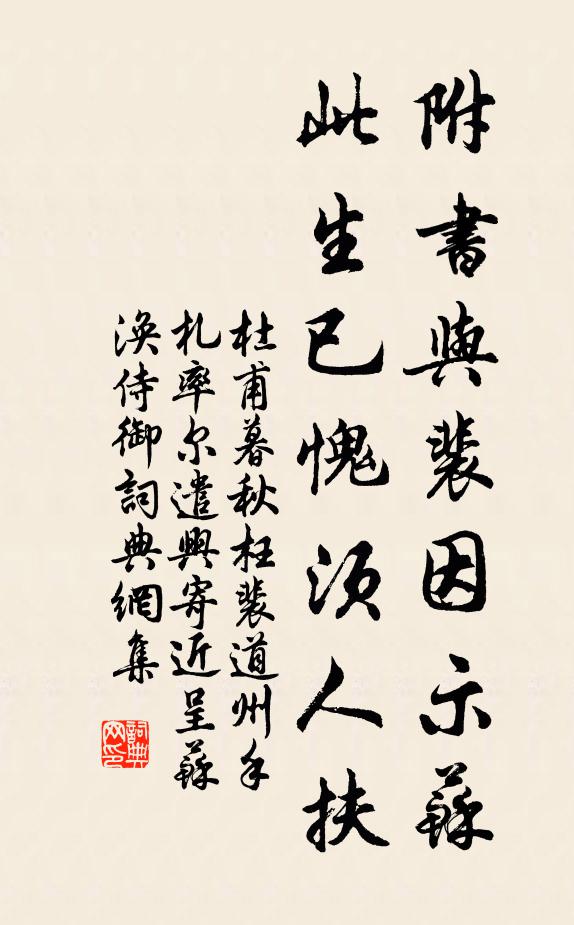 附書與裴因示蘇
此生已愧須人扶
杜甫暮秋枉裴道州手
札率尔遣興寄近呈蘇
渙侍御詞典網集
詞典網印